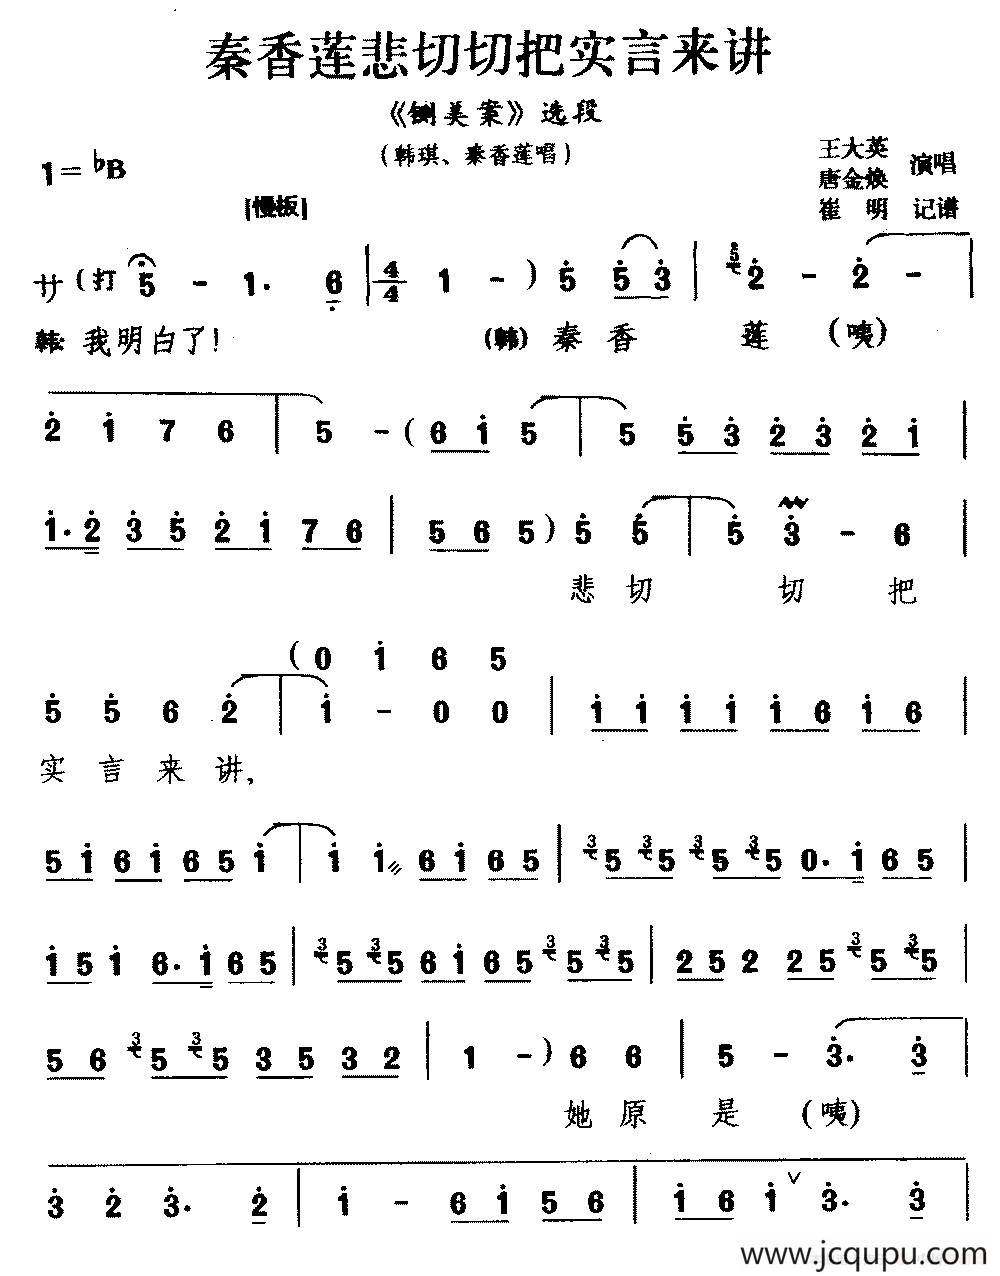 秦香莲悲切切把实言来讲
《铡美案》选段
(韩琪、秦香莲唱)
1=♭B
王大英
唐金焕 演唱
崔 明 记谱
[慢板]
サ(打 5 - 1. 6 | 4/4 1 - ) 5 5 3 | 2 - 2 - |
韩: 我明白了! (韩) 秦香 莲 (咦)
2 1 7 6 | 5 - ( 6 1 5 | 5 5 3 2 3 2 1 |
1. 2 3 5 2 1 7 6 | 5 6 5 ) 5 5 | 5 3 - 6 |
悲切 切 把
( 0 1 6 5
5 5 6 2 | 1 - 0 0 | 1 1 1 1 1 6 1 6 |
实言来讲,
5 1 6 1 6 5 1 | 1 1 6 1 6 5 | 5 5 5 5 0. 1 6 5 |
1 5 1 6. 1 6 5 | 5 5 6 1 6 5 5 5 | 2 5 2 2 5 5 5 |
5 6 5 5 3 5 3 2 | 1 - ) 6 6 | 5 - 3. 3 |
她原 是 (咦)
3 2 3. 2 | 1 - 6 1 5 6 | 1 6 1 ∨ 3. 3 |
www.jcqupu.com